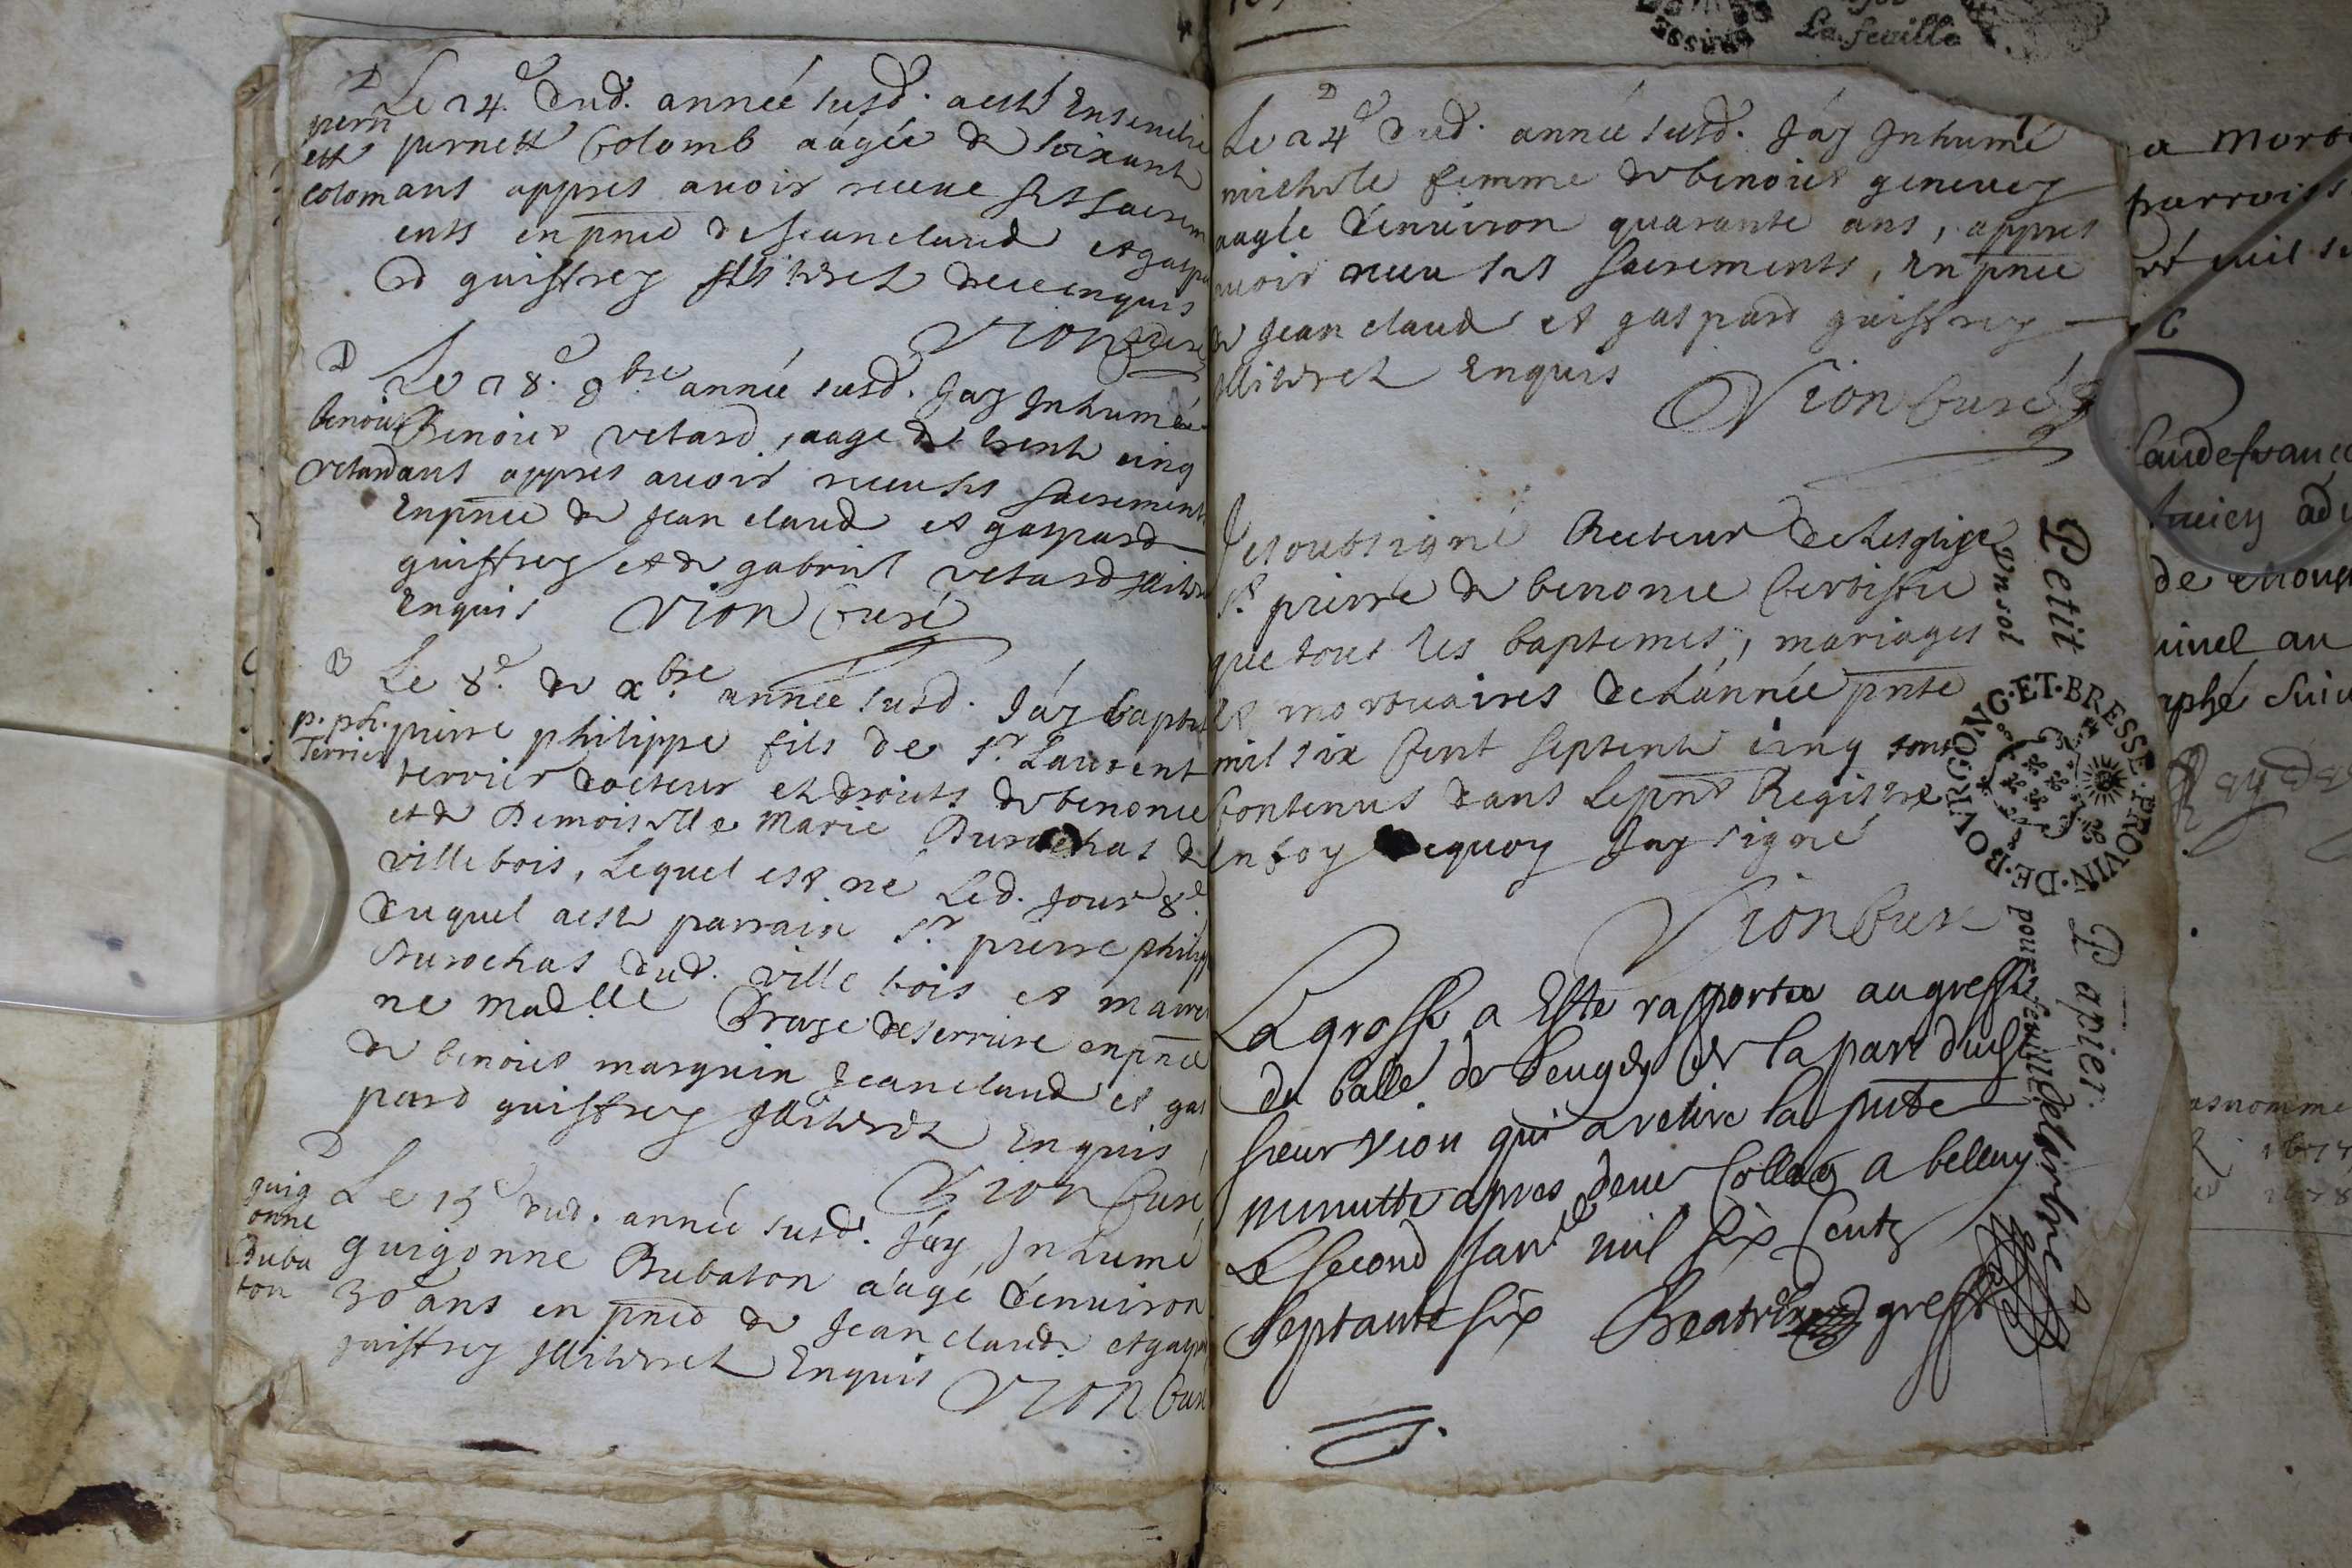 D
Le 24.e dud. année susd. a esté Ensevelie
pern
ett
colom
pernett Colomb aagée de soixante
ans appres avoir receue ses sacrem
ents en pnce de Jean claud et gaspa
rd guiffrey illiteres de ce enquis
Vion Curé
D
Le 28.e 9bre année susd. Jay Inhumé
benoist
vetard
Benoist vetard, aage de trente cinq
ans appres avoir receu ses sacrements
En pnce de Jean claud et gaspard
guiffrey et de gabriel vetard illiteres
Enquis Vion Curé
B
Le 8.e de xbre année susd. Jay baptisé
p. ph.
Terrier
pierre philippe fils de Sr. Laurent
terrier docteur et droicts de benonce
et de Demoiselle Marie Durochat de
villebois, Lequel est né Led. Jour 8.e
duquel a esté parrain Sr. pierre philip
Durochat dud. ville bois et marrei
ne Madlle de serriere en pnce
de benoist marquin Jean claud et gas
pard guiffrey illiteres Enquis
Vion Curé
D
guig
onne
Duba
ton
Le 15e dud. année susd. Jay Inhumé
guigonne Dubaton aagé d'environ
30 ans en pnce de Jean claude et gaspar
guiffrey illiteres Enquis
Vion Curé
La feuille
D
Le 24e dud. année susd. Jay Inhumé
michele femme de benoist genevey
aagée d'environ quarante ans, appres
avoir receu ses sacrements, En pnce
de Jean claude et gaspard guiffrey
illiteres Enquis
Vion Curé
Je soubsigné Recteur de Lesglise
St. pierre de benonce Certiffie
que tous les baptemes, mariages
et mortuaires de L'année pnte
mil six Cent septente cinq sont
Contenus dans Le pnt Registre
En foy de quoy Jay signé
Vion Curé
La grosse a Este rapportee au greffe
du Balle de Beugey de la part dud
sieur Vion qui a retire la pnte
minutte apres deue Collaon a belley
Le second Janr mil six Centz
septante six greff
Petit Papier.
Un sol pour feuille
PROVIN·DE·BOVRGONG·ET·BRESSE